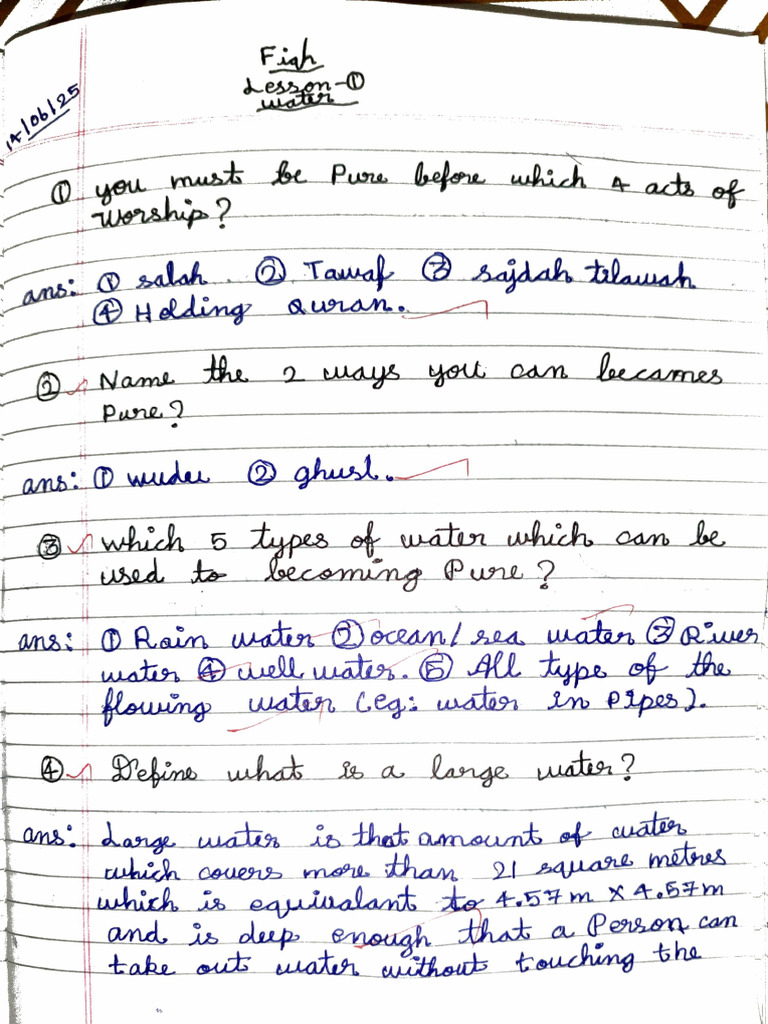 Fiqh
Lesson-①
water
14/06/25
① you must be Pure before which 4 acts of
worship?
ans: ① salah ② Tawaf ③ sajdah tilawah
④ Holding Quran.
② Name the 2 ways you can becames
Pure?
ans: ① wudu ② ghusl.
③ which 5 types of water which can be
used to becoming Pure?
ans: ① Rain water ② ocean/sea water ③ River
water ④ well water. ⑤ All type of the
flowing water (eg: water in Pipes).
④ Define what is a large water?
ans: Large water is that amount of water
which covers more than 21 square metres
which is equivalant to 4.57m × 4.57m
and is deep enough that a Person can
take out water without touching the